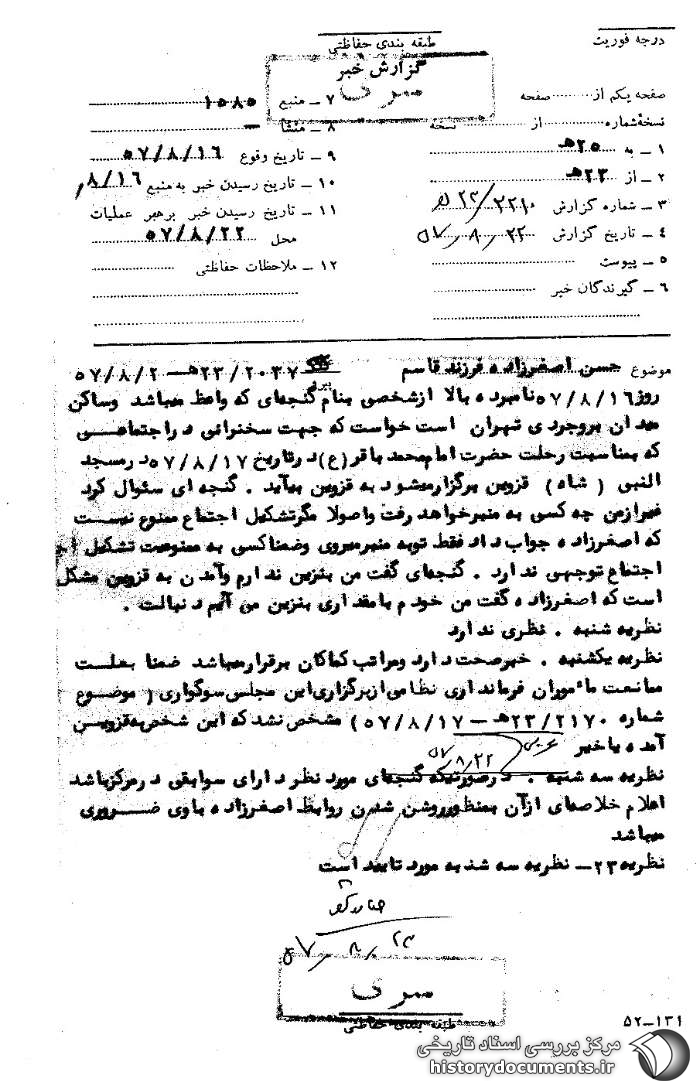 درجه فوریت
طبقه بندی حفاظتی
گزارش خبر
سری
صفحه یکم از ........ صفحه
نسخه شماره ........ از ........ نسخه
۱ ـ به ۲۵ ﻫ
۲ ـ از ۲۳ ﻫ
۳ ـ شماره گزارش ۲۳/۲۲۱۰ ﻫ
۴ ـ تاریخ گزارش ۵۷/۸/۲۲
۵ ـ پیوست
۶ ـ گیرندگان خبر
۷ ـ منبع ۱۵۸۵
۸ ـ منشأ ـ
۹ ـ تاریخ وقوع ۵۷/۸/۱۶
۱۰ ـ تاریخ رسیدن خبر به منبع ۸/۱۶
۱۱ ـ تاریخ رسیدن خبر برهبر عملیات
محل ۵۷/۸/۲۲
۱۲ ـ ملاحظات حفاظتی
موضوع حسن اصغرزاده فرزند قاسم ۲۳/۲۰۳۷ ﻫ ـ ۵۷/۸/۲
روز ۵۷/۸/۱۶ نامبرده بالا از شخصی بنام گنجه‌ای که واعظ میباشد وساکن
میدان بروجردی تهران است خواست که جهت سخنرانی در اجتماعی
که بمناسبت رحلت حضرت امام محمد باقر (ع) در تاریخ ۵۷/۸/۱۷ در مسجد
النبی (شاه) قزوین برگزار میشود به قزوین بیآید . گنجه ای سئوال کرد
غیرازمن چه کسی به منبر خواهد رفت واصولا مگر تشکیل اجتماع ممنوع نیست
که اصغرزاده جواب داد فقط تو به منبر میروی وضمنا کسی به ممنوعیت تشکیل
اجتماع توجهی ندارد . گنجه‌ای گفت من بنزین ندارم وآمدن به قزوین مشکل
است که اصغرزاده گفت من خودم با مقداری بنزین می آئیم دنبالت .
نظریه شنبه . نظری ندارد
نظریه یکشنبه . خبر صحت دارد ومراتب کماکان برقرار میباشد ضمنا بعلت
ممانعت مأموران فرمانداری نظامی از برگزاری این مجلس سوگواری (موضوع
شماره ۲۳/۲۱۷۰ ﻫ ـ ۵۷/۸/۱۷) مشخص نشد که این شخص به قزوین
آمده یا خیر ۵۷/۸/۲۲
نظریه سه شنبه . در صورتیکه گنجه‌ای مورد نظر دارای سوابقی در مرکز باشد
اعلام خلاصه‌ای از آن بمنظور روشن شدن روابط اصغرزاده با وی ضروری
میباشد
نظریه ۲۳ ـ نظریه سه شنبه مورد تایید است
۵۷/۸/۲۳
سری
طبقه بندی حفاظتی
۵۲ـ۱۳۱
مرکز بررسی اسناد تاریخی
historydocuments.ir